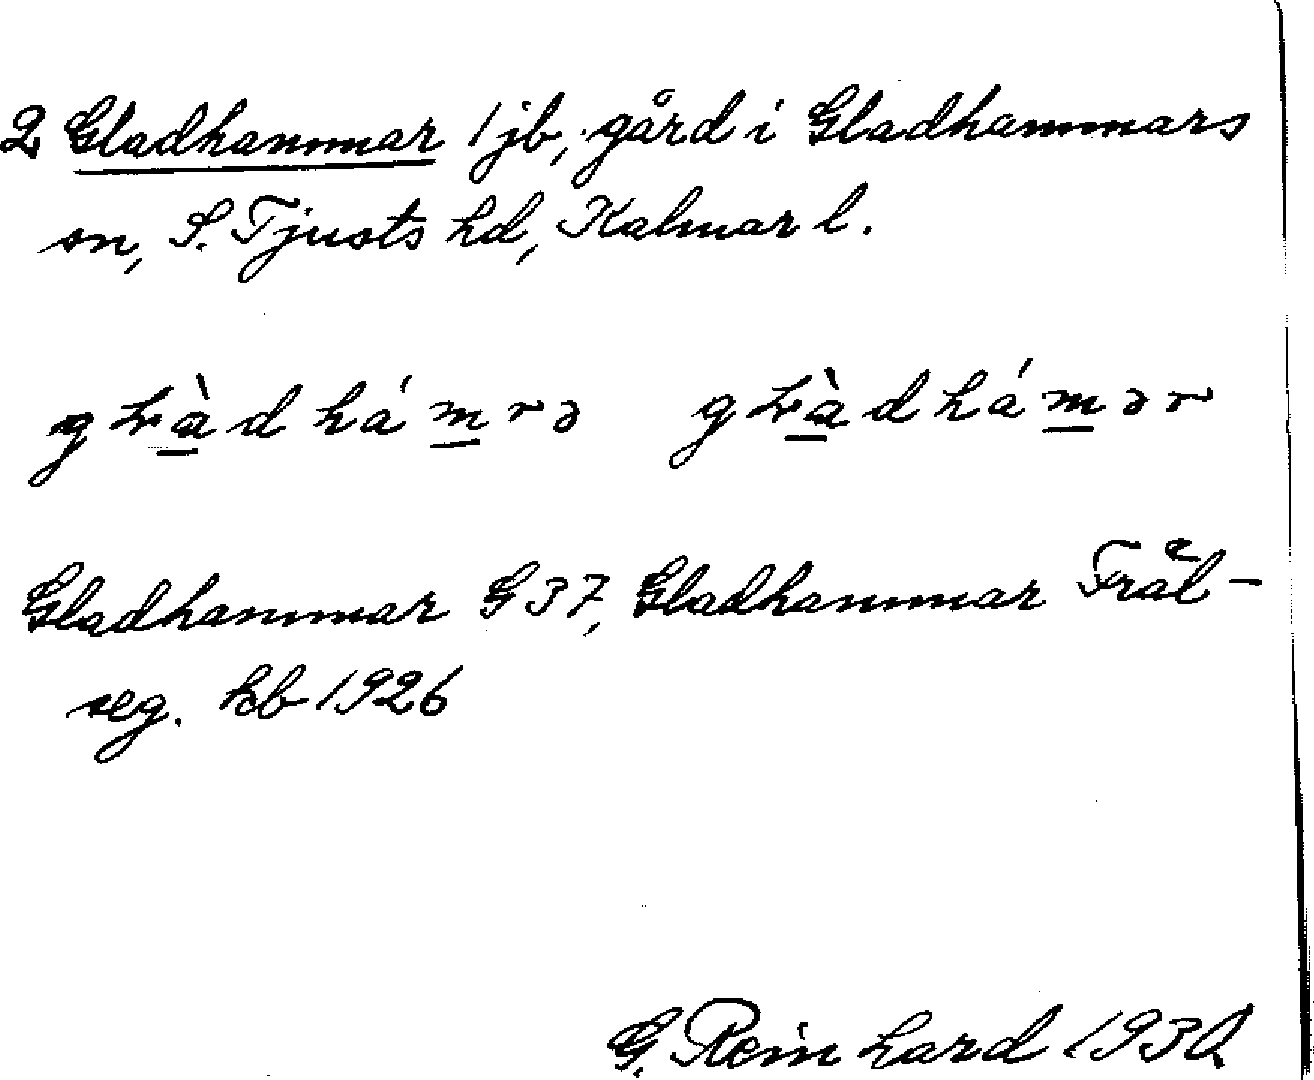 2 Gladhammar 1 jb, gård i Gladhammars
sn, S. Tjusts hd, Kalmar l.
gɫàdhámrə gɫàdhámər
Gladhammar G 37, Gladhammar Fräl-
seg. kb 1926
G. Reinhard 1930